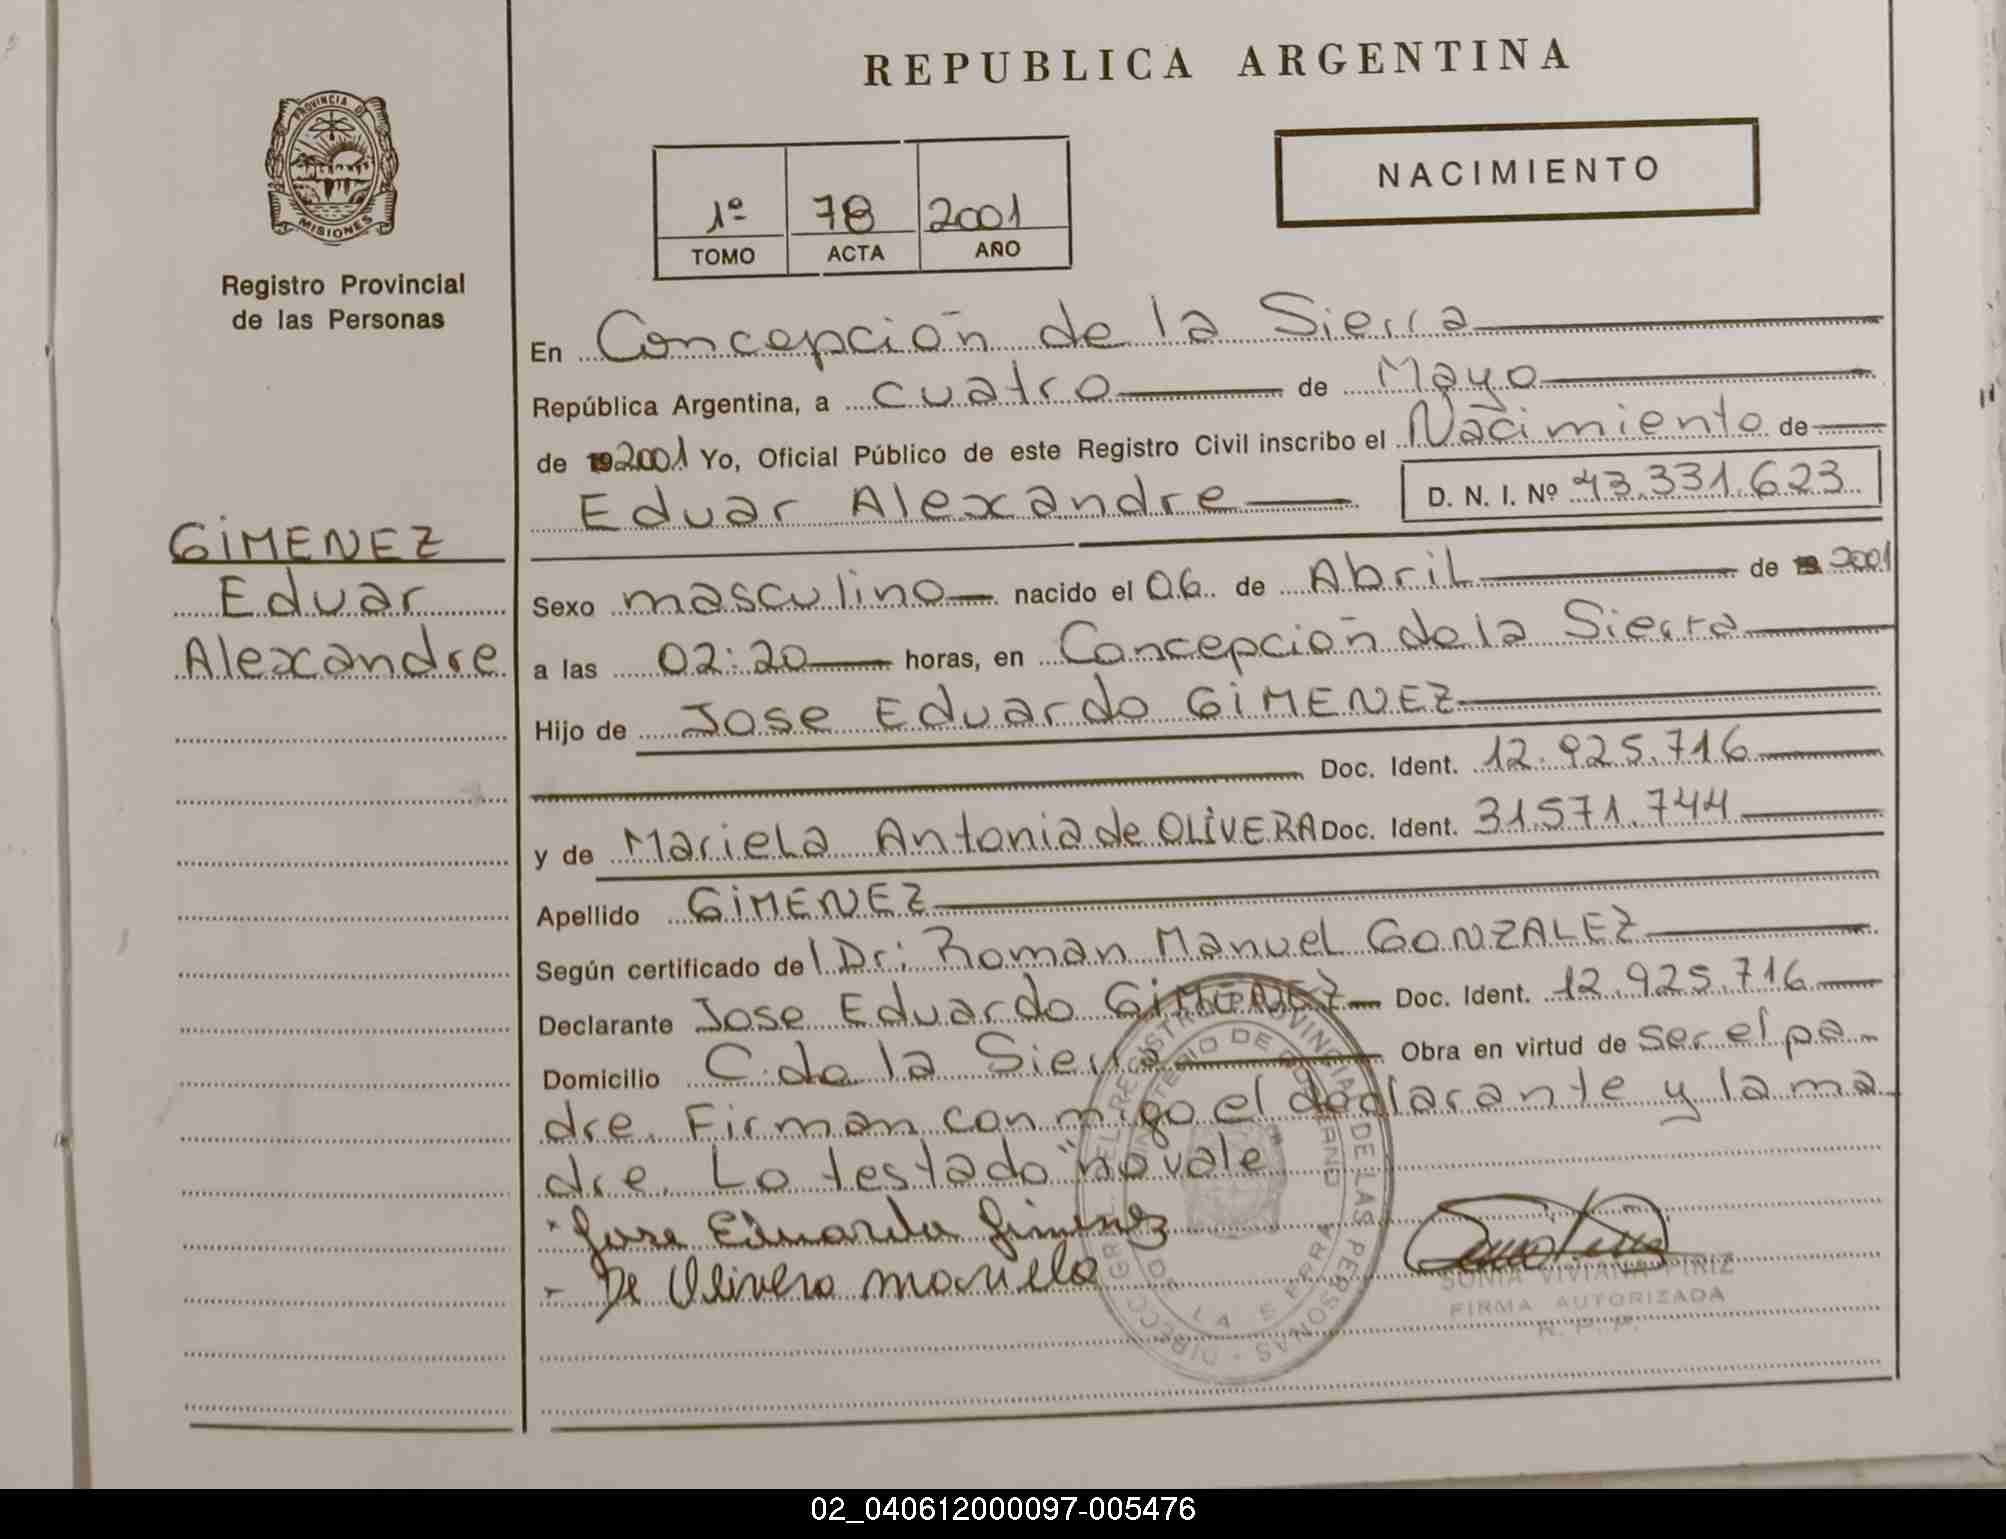 REPUBLICA ARGENTINA
PROVINCIA D MISIONES
Registro Provincial
de las Personas
1º 78 2001
TOMO ACTA AÑO
NACIMIENTO
En Concepción de la Sierra
República Argentina, a cuatro de Mayo
de 192001 Yo, Oficial Público de este Registro Civil inscribo el Nacimiento de
Eduar Alexandre D. N. I. Nº 43.331.623
GIMENEZ
Eduar
Alexandre
Sexo masculino nacido el 06 de Abril de 19 2001
a las 02:20 horas, en Concepción de la Sierra
Hijo de Jose Eduardo GIMENEZ
Doc. Ident. 12.925.716
y de Mariela Antonia de OLIVERA Doc. Ident. 31.571.744
Apellido GIMENEZ
Según certificado del Dr: Roman Manuel GONZALEZ
Declarante Jose Eduardo GIMENEZ Doc. Ident. 12.925.716
Domicilio C. de la Sierra Obra en virtud de ser el pa-
dre. Firman conmigo el declarante y la ma
dre. Lo testado "no vale"
Jose Eduardo Gimenez
De Olivera mariela
SONIA VIVIANA PIRIZ
FIRMA AUTORIZADA
R. P. P.
DIRECC GRL. DEL REGISTRO PROVINCIAL DE LAS PERSONAS
MINISTERIO DE GOBIERNO
02_040612000097-005476